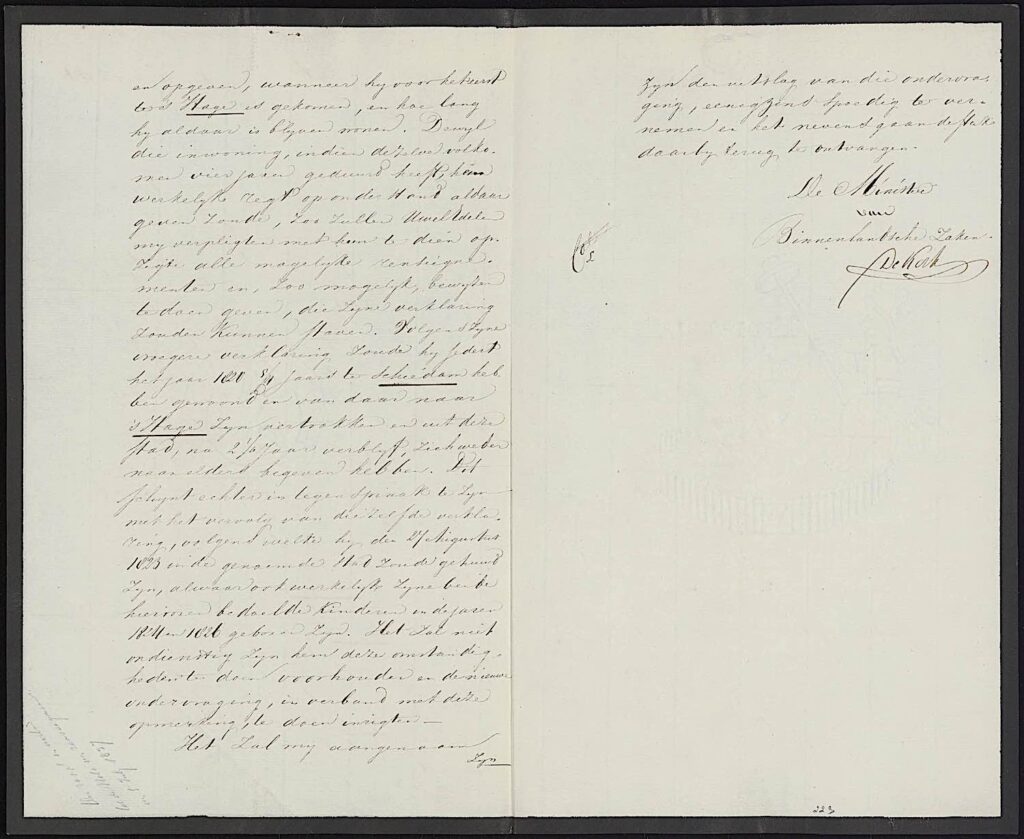 en opgeven, wanneer hy voor het eerst
te 's Hage is gekomen, en hoe lang
hy aldaar is blyven wonen. Dewyl
die inwoning, indien dezelve volko-
men vier jaren geduurd heeft, hem
werkelyk regt op onderstand aldaar
geven zoude, zoo zullen UwelEdelen
my verpligten met hun te dien op-
zigte alle mogelyke renseigne-
menten en, zoo mogelyk, bewyzen
te doen geven, die zyne verklaring
zouden kunnen staven. Volgens zyne
vroegere verklaring zoude hy sedert
het jaar 1820 jaars te Schiedam heb-
ben gewoond en van daar naar
's Hage zyn vertrokken en uit deze
stad, na 2 1/2 jaar verblyf, zich weder
naar elders begeven hebben. Dit
schynt echter in tegenspraak te zyn
met het vervolg van die zelfde verkla-
ring, volgens welke hy den 27 Augustus
1823 in de genoemde stad zoude gehuwd
zyn, alwaar ook werkelyk zyne beide
hierboven bedoelde kinderen in de jaren
1824 en 1826 geboren zyn. Het zal niet
ondienstig zyn hem deze omstandig-
heden te doen voorhouden en de nieuwe
ondervraging, in verband met deze
opmerking, te doen inrigten —
Het zal my aangenaam
zyn
zyn den uitslag van die ondervra-
ging, eenigzins spoedig te ver-
nemen en het nevensgaande stuk
daarby terug te ontvangen.
De Minister
van
Binnenlandsche Zaken.
De Kock
1837
223